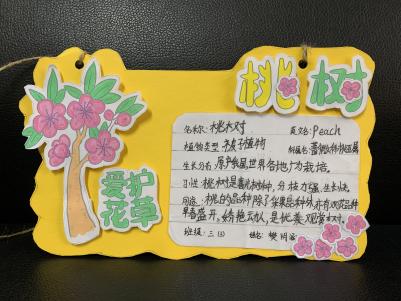 桃树
爱护
花草
名称: 桃树 英文名: Peach
植物类型 种子植物 科属名: 蔷薇科桃属
生长分布: 原产 世界各地广栽培。
习性: 桃树是喜光树种, 分枝力强, 生长快。
用途: 桃的品种除了采果品种外, 亦有观花品种
早春盛开, 娇艳动人, 是优美观赏树。
班级: 三 姓名: 樊